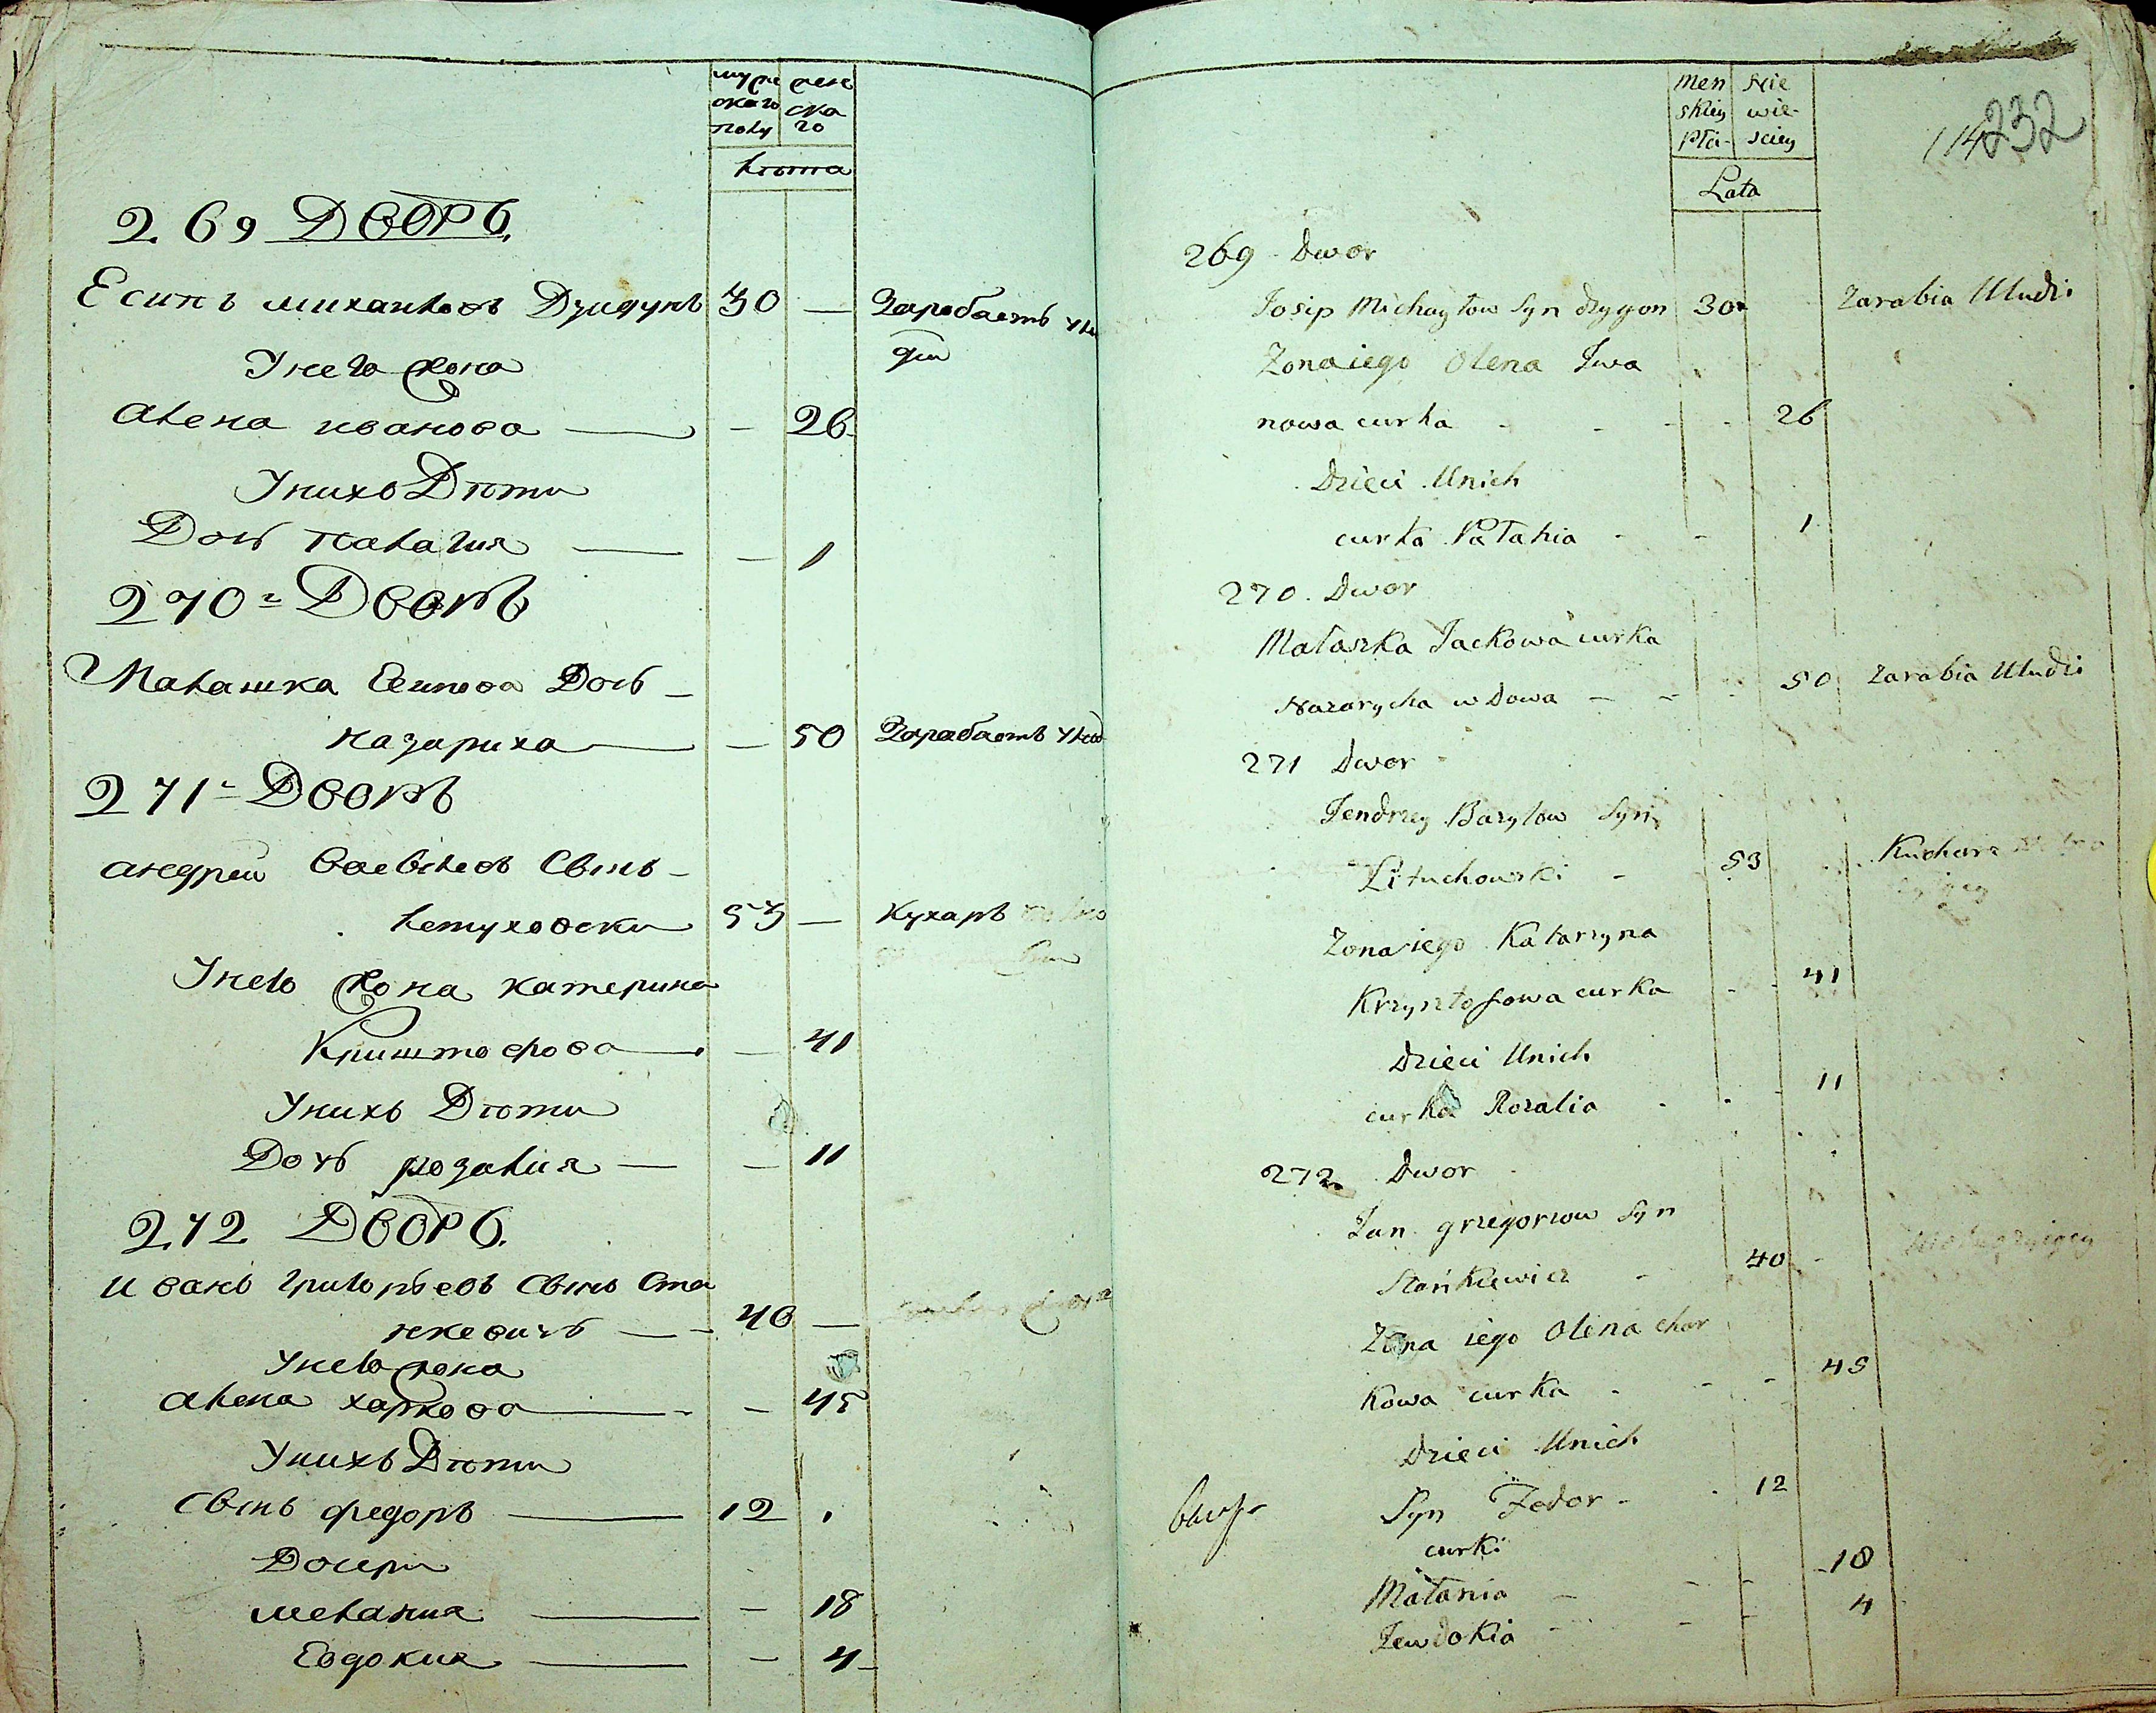 муже женс
скаго ска
полу го
Лѣта
269 ДВОРЬ.
Есипъ михаиловъ Дзигунъ 30 — Заробаетъ улю
дей
Унего жона
Алена иванова — — 26
Унихъ Дѣти
Дочь палагия — — 1
270 ДВОРЪ
Малашка Есипова Дочь —
назариха — — 50 Заробаетъ улюд
271 ДВОРЪ
андрей Васильевъ Сынъ —
летуховски 53 — Кухаръ
Унего жона катерина
Криштофова — — 41
Унихъ Дѣти
Дочь розалия — — 11
272 ДВОРЬ.
иванъ григорьевъ Сынъ Ста
нкевичъ — 40 —
Унего жона
алена харкова — — 45
Унихъ Дѣти
Сынъ федоръ — 12
Дочери
мелания — — 18
Евдокия — — 4
Men Nie
skiey wie-
Płci- sciey
Lata
114 232
269 Dwor
Josip Michayłow Syn dzygon 30 Zarabia Uludzi
Zona iego Olena Iwa
nowa curka 26
Dzieci Unich
curka Pałahia 1
270. Dwor
Małaszka Jackowa curka
Nazarycha wDowa — 50 Zarabia Uludzi
271 Dwor
Jendrzey Bazylow Syn
Lituchowski 53 Kuchara
Zona iego Katarzyna
Krzysztofowa curka 41
Dzieci Unich
curka Rozalia 11
272. Dwor
Jan grzegorzow Syn
Stańkiewicz 40
Zona iego Olena char
Kowa curka 45
Dzieci Unich
Syn Fedor 12
curki
Małania 18
Jewdokia 4